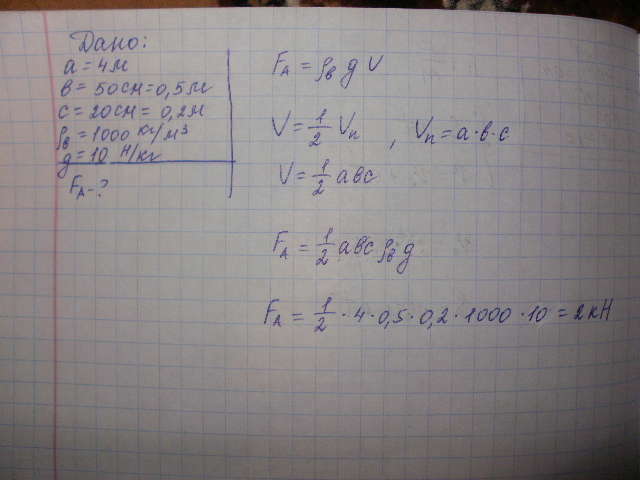 Дано:
a = 4м
в = 50см = 0,5м
с = 20см = 0,2м
ρв = 1000 кг/м³
g = 10 Н/кг
FA - ?
FA = ρв g V
V = 1/2 Vп , Vп = a·в·с
V = 1/2 aвс
FA = 1/2 aвс ρв g
FA = 1/2 · 4 · 0,5 · 0,2 · 1000 · 10 = 2кН